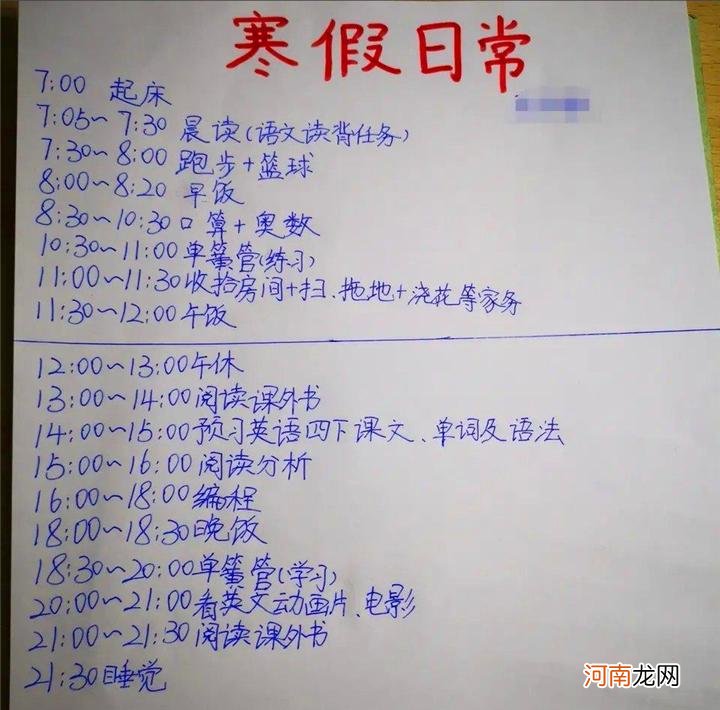 寒假日常
7:00 起床
7:05~7:30 晨读(语文读背任务)
7:30~8:00 跑步+篮球
8:00~8:20 早饭
8:30~10:30 口算+奥数
10:30~11:00 单簧管(练习)
11:00~11:30 收拾房间+扫、拖地+浇花等家务
11:30~12:00 午饭
12:00~13:00 午休
13:00~14:00 阅读课外书
14:00~15:00 预习英语四下课文、单词及语法
15:00~16:00 阅读分析
16:00~18:00 编程
18:00~18:30 晚饭
18:30~20:00 单簧管(学习)
20:00~21:00 看英文动画片、电影
21:00~21:30 阅读课外书
21:30 睡觉
河南龙网